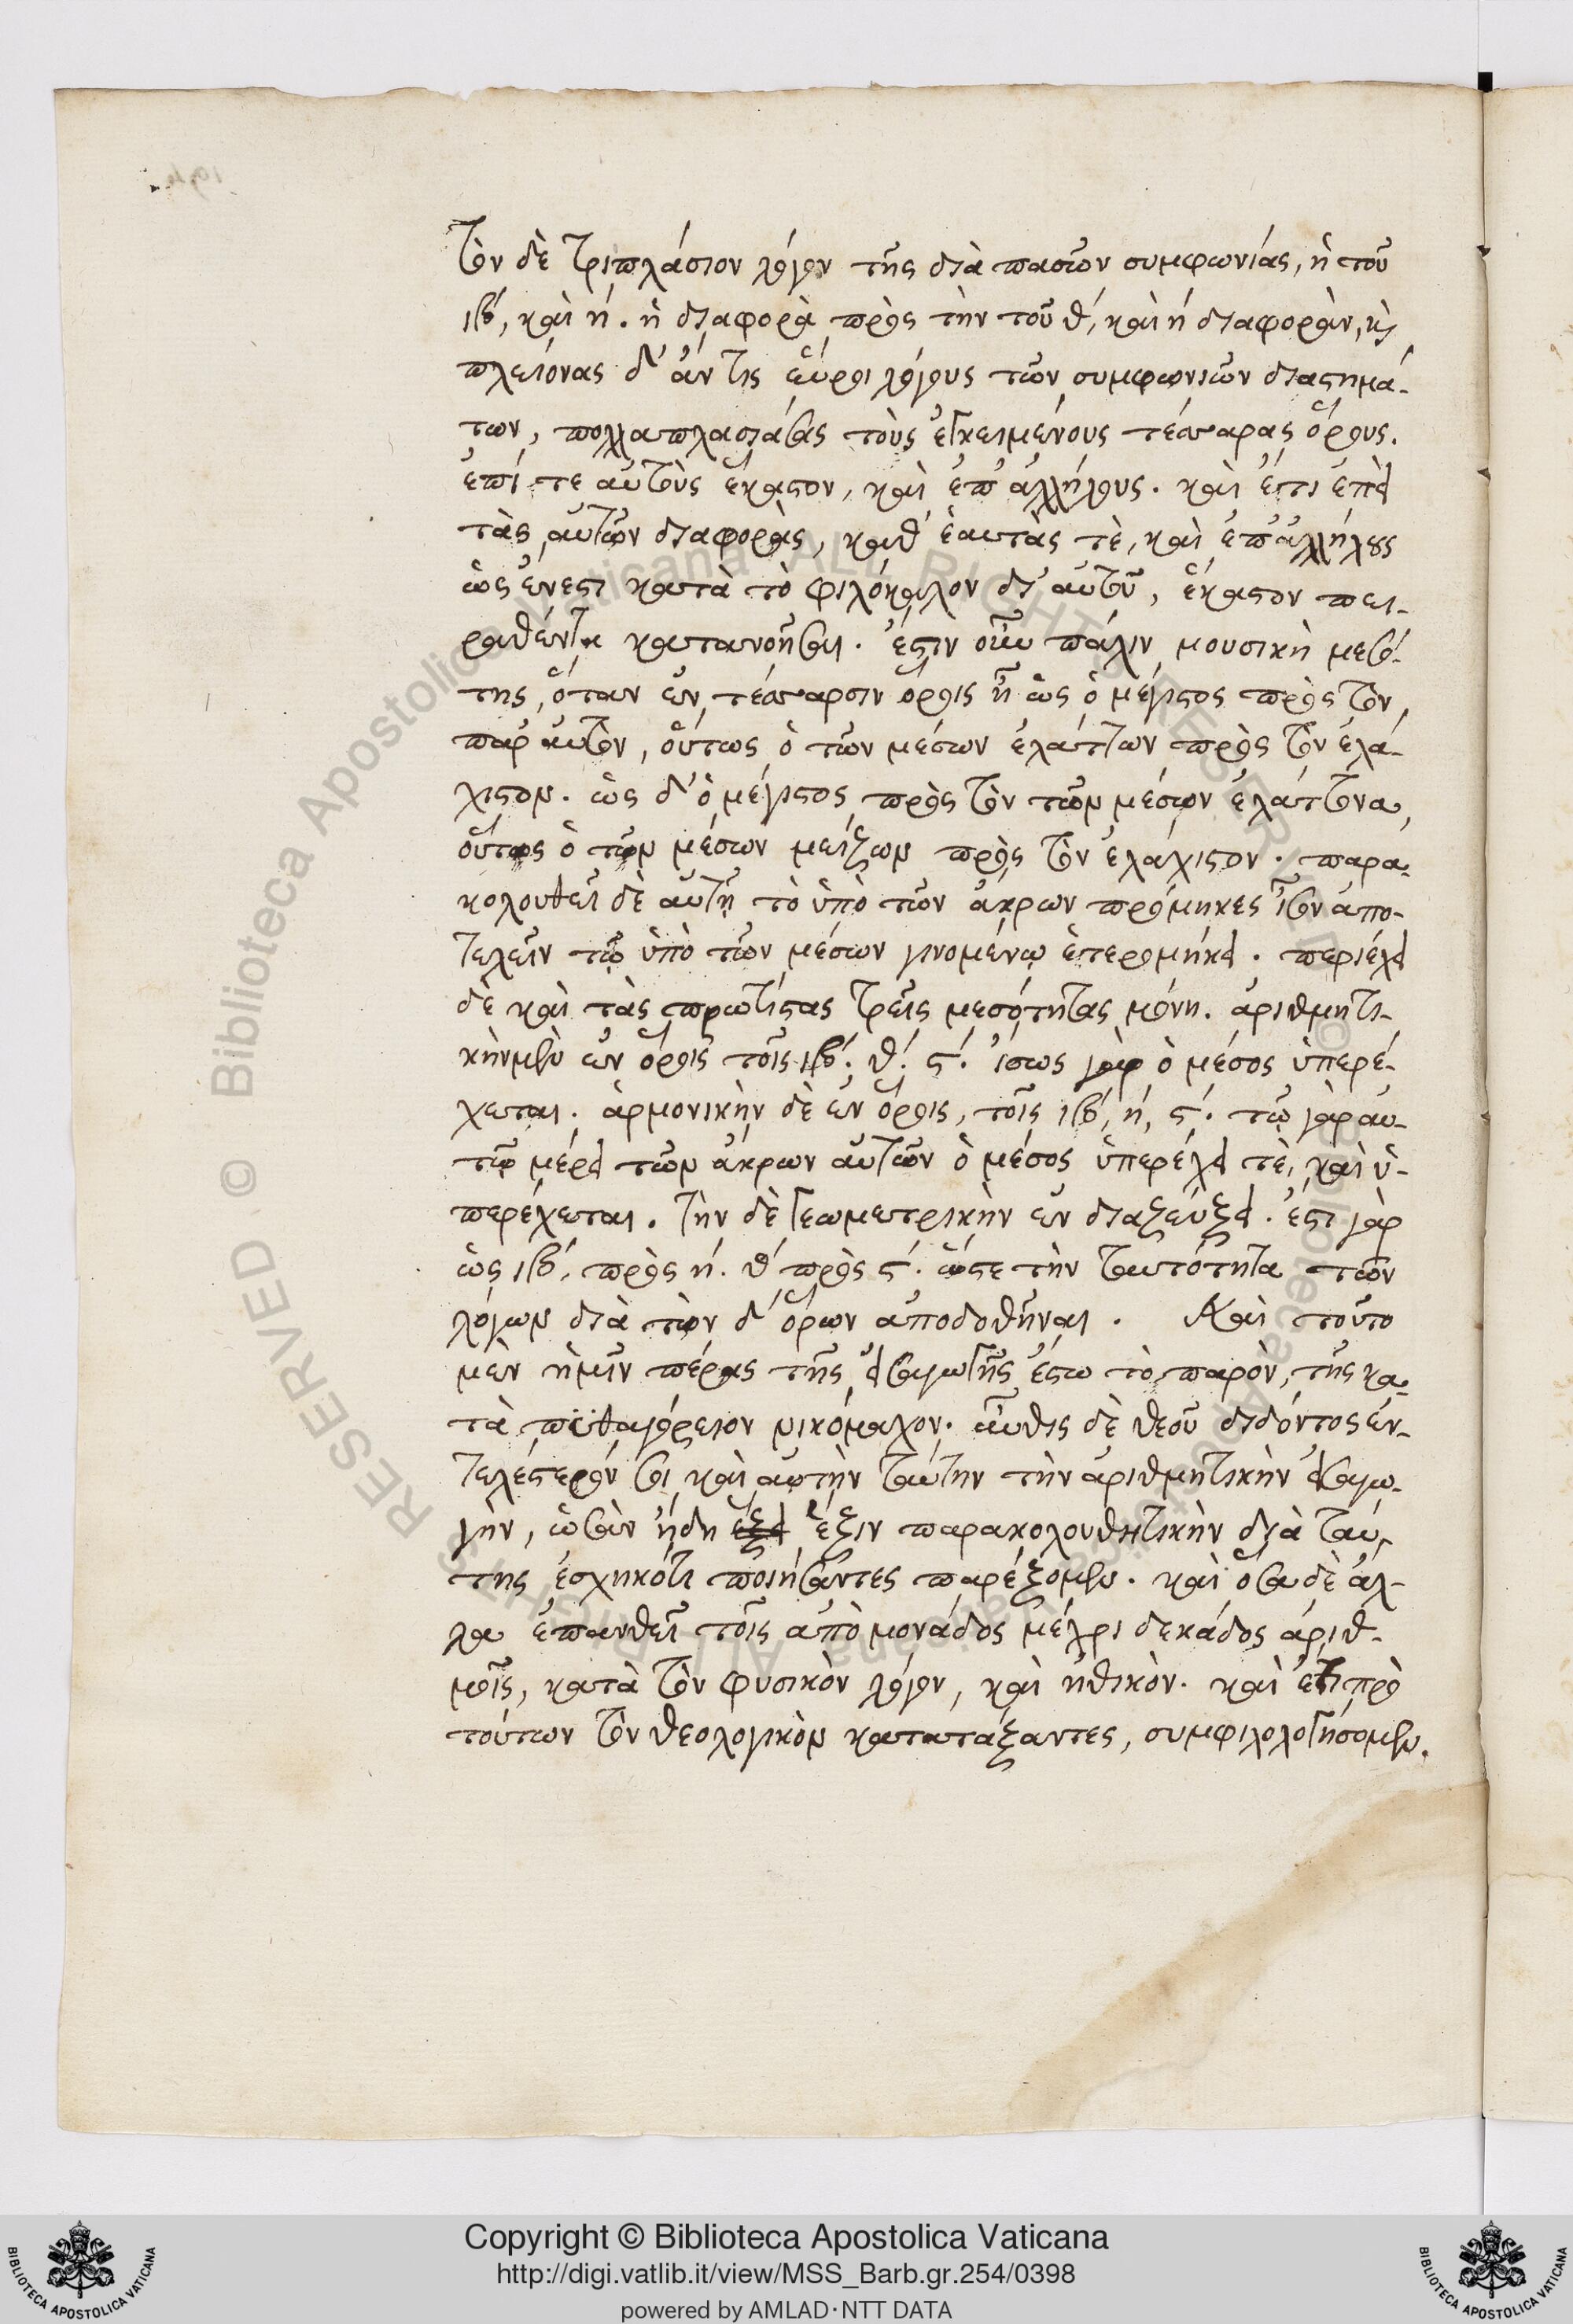 τὸν δὲ τριπλάσιον λόγον τῆς διὰ πασῶν συμφωνίας, ἡ τοῦ
ιβ΄, καὶ η΄. ἡ διαφορὰ πρὸς τὴν τοῦ θ΄, καὶ η΄ διαφορὰν, κὶ
πλείονας δ' ἄν τις εὕροι λόγους τῶν συμφωνιῶν διαστημά-
των, πολλαπλασιάσας τοὺς ἐγκειμένους τέσσαρας ὅρους.
ἐπί τε αὐτοὺς ἕκαστον, καὶ ἐπ' ἀλλήλους. καὶ ἔτι ἐπεὶ
τὰς αὐτῶν διαφορὰς, καθ' ἑαυτάς τὲ, καὶ ἐπ' ἀλλήλους
ὡς ἔνεστι κατὰ τὸ φιλόκαλον δι' αὐτοῦ, ἕκαστον πει-
ραθέντα κατανοῆσαι. ἔστιν οὖν πάλιν μουσικὴ μεσό-
της, ὅταν ἐν τέσσαρσιν ὅροις ᾖ ὡς ὁ μέγιστος πρὸς τὸν
παρ' αὐτὸν, οὕτως ὁ τῶν μέσων ἐλάττων πρὸς τὸν ἐλά-
χιστον. ὡς δ' ὁ μέγιστος πρὸς τὸν τῶν μέσων ἐλάττονα,
οὕτως ὁ τῶν μέσων μείζων πρὸς τὸν ἐλάχιστον. παρα-
κολουθεῖ δὲ αὐτῇ τὸ ὑπὸ τῶν ἄκρων πρόμηκες ἶσον ἀπο-
τελεῖν τῷ ὑπὸ τῶν μέσων γινομένῳ ἑτερομήκει. περιέχει
δὲ καὶ τὰς πρωτίστας τρεῖς μεσότητας μόνη. ἀριθμητι-
κὴν μὲν ἐν ὅροις τοῖς ιβ΄. θ΄. ϛ΄. ἴσως γὰρ ὁ μέσος ὑπερέ-
χεται. ἁρμονικὴν δὲ ἐν ὅροις, τοῖς ιβ΄, η΄, ϛ΄. τῷ γὰρ αυ-
τῷ μέρει τῶν ἄκρων αὐτῶν ὁ μέσος ὑπερέχει τὲ, καὶ ὑ-
περέχεται. τὴν δὲ γεωμετρικὴν ἐν διαζεύξει. ἔστι γὰρ
ὡς ιβ΄, πρὸς η΄. θ΄ πρὸς ϛ΄. ὥστε τὴν ταυτότητα τῶν
λόγων διὰ τῶν δ΄ ὅρων ἀποδοθῆναι. Καὶ τοῦτο
μὲν ἡμῖν πέρας τῆς εἰσαγωγῆς ἔστω τὸ παρὸν, τῆς κα-
τὰ πυθαγόρειον νικόμαχον. αὖθις δὲ θεοῦ διδόντος ἐν-
τελέστερόν σοι καὶ αὐτὴν ταύτην τὴν ἀριθμητικὴν εἰσαγω-
γὴν, ὡσὰν ἤδη ἕξει ἕξιν παρακολουθητικὴν διὰ ταύ-
της ἐσχηκότι ποιήσαντες παρέξομεν. καὶ ὅσα δὲ ἀλ-
λα ἐπανθεῖ τοῖς ἀπὸ μονάδος μέχρι δεκάδος ἀριθ-
μοῖς, κατὰ τὸν φυσικὸν λόγον, καὶ ἠθικὸν. καὶ ἔτι πρὸ
τούτων τὸν θεολογικὸν κατατάξαντες, συμφιλολογήσομεν.
RESERVED © Biblioteca Apostolica Vaticana ALL RIGHTS RESERVED © Biblioteca Apostolica Vaticana ALL RIGHTS
Copyright © Biblioteca Apostolica Vaticana
http://digi.vatlib.it/view/MSS_Barb.gr.254/0398
powered by AMLAD·NTT DATA
BIBLIOTECA APOSTOLICA VATICANA
BIBLIOTECA APOSTOLICA VATICANA